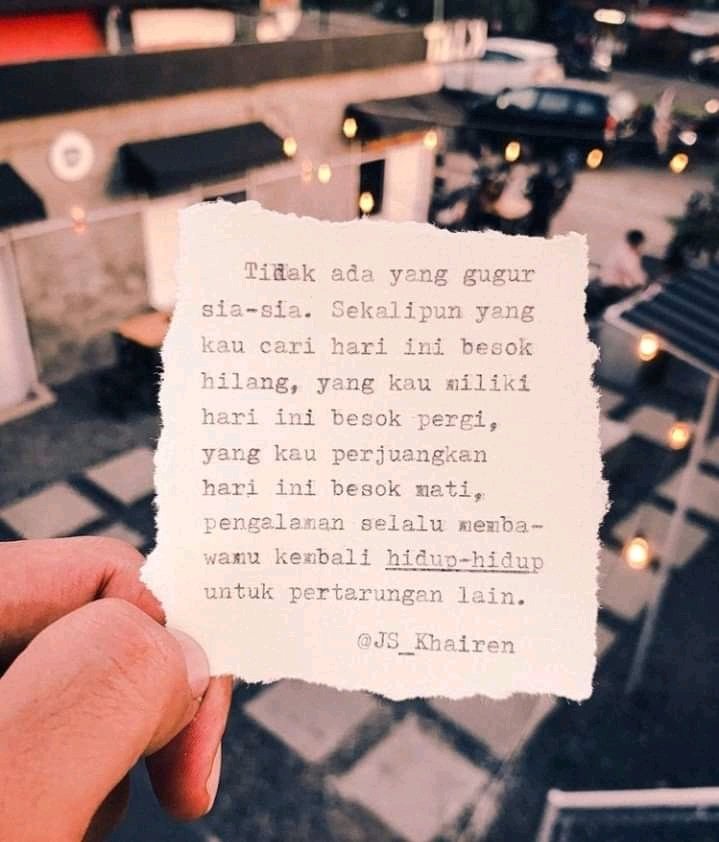 Tidak ada yang gugur
sia-sia. Sekalipun yang
kau cari hari ini besok
hilang, yang kau miliki
hari ini besok pergi,
yang kau perjuangkan
hari ini besok mati,
pengalaman selalu memba-
wamu kembali hidup-hidup
untuk pertarungan lain.
@JS_Khairen